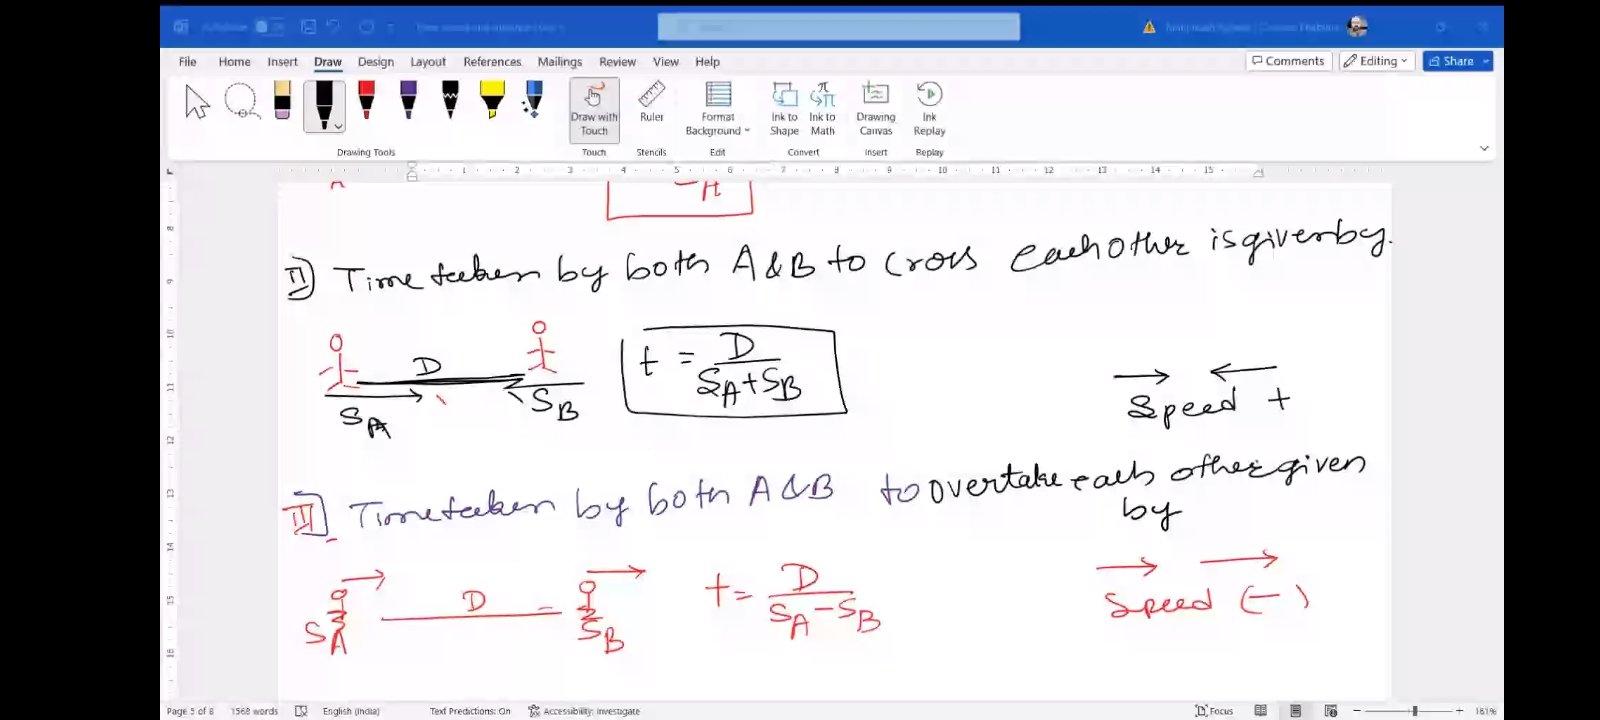 File Home Insert Draw Design Layout References Mailings Review View Help Comments Editing Share
Draw with Touch Ruler Format Background Ink to Shape Ink to Math Drawing Canvas Ink Replay
Drawing Tools Touch Stencils Edit Convert Insert Replay
1 2 3 4 5 6 7 8 9 10 11 12 13 14 15
A
A
II) Time taken by both A & B to cross each other is given by.
D
t = D / SA + SB
SA SB
Speed +
III) Time taken by both A & B to overtake each other given
by
D
t = D / SA - SB
SA SB
Speed (-)
Page 5 of 8 1568 words English (India) Text Predictions: On Accessibility: Investigate Focus 161%